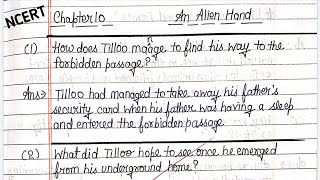 NCERT
Chapter 10 An Alien Hand
(1) How does Tilloo manage to find his way to the forbidden passage?
Ans> Tilloo had managed to take away his father's
security card when his father was having a sleep
and entered the forbidden passage
(2) What did Tilloo hope to see once he emerged
from his underground home?